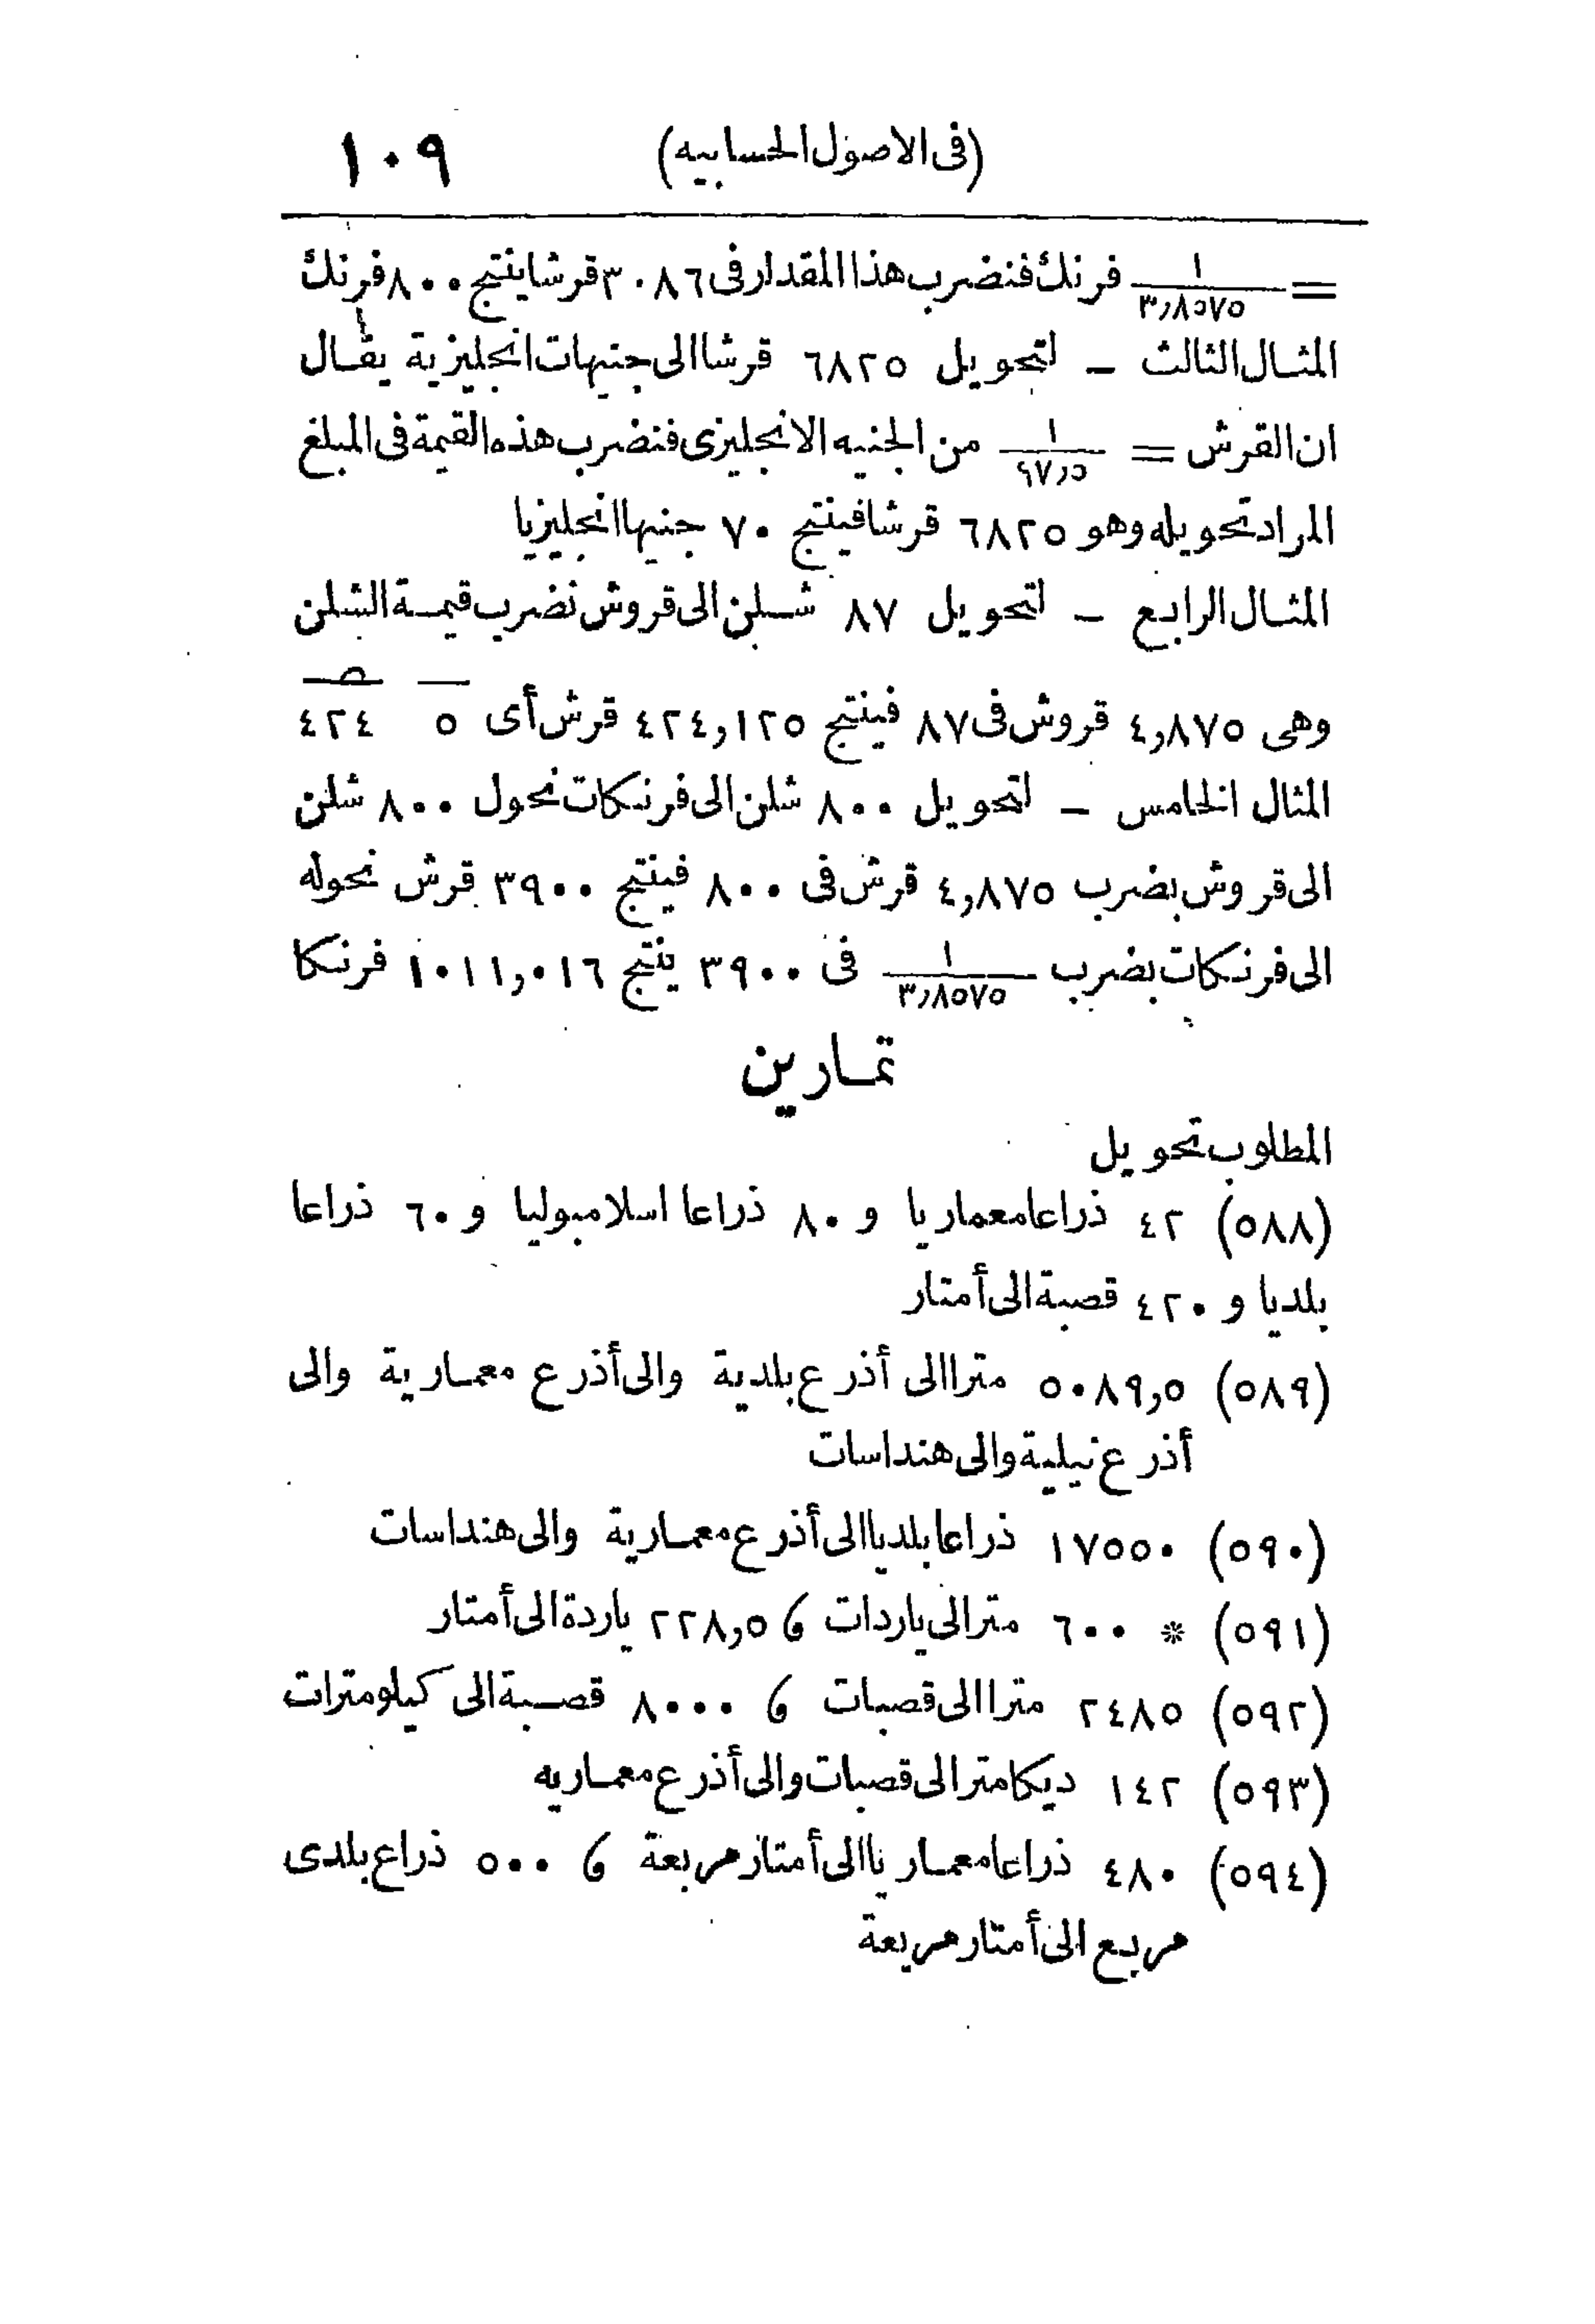 (فى الاصول الحسابيه) ١٠٩
= ١/٣٫٨٥٧٥ فرنك فنضرب هذا المقدار فى ٣٠٨٦ قرشا ينتج ٨٠٠ فرنك
المثال الثالث - لتحويل ٦٨٢٥ قرشا الى جنيهات انجليزية يقال
ان القرش = ١/٩٧٫٥ من الجنيه الانجليزى فنضرب هذه القيمة فى المبلغ
المراد تحويله وهو ٦٨٢٥ قرشا فينتج ٧٠ جنيها انجليزيا
المثال الرابع - لتحويل ٨٧ شلن الى قروش نضرب قيمة الشلن
وهى ٤,٨٧٥ قروش فى ٨٧ فينتج ٤٢٤,١٢٥ قرش أى ٥ ٤٢٤
المثال الخامس - لتحويل ٨٠٠ شلن الى فرنكات نحول ٨٠٠ شلن
الى قروش بضرب ٤,٨٧٥ قرش فى ٨٠٠ فينتج ٣٩٠٠ قرش نحوله
الى فرنكات بضرب ١/٣٫٨٥٧٥ فى ٣٩٠٠ ينتج ١٠١١,٠١٦ فرنكا
تمارين
المطلوب تحويل
(٥٨٨) ٤٢ ذراعا معماريا و ٨٠ ذراعا اسلامبوليا و ٦٠ ذراعا
بلديا و ٤٢٠ قصبة الى أمتار
(٥٨٩) ٥٠٨٩,٥ مترا الى أذرع بلدية والى أذرع معمارية والى
أذرع نيلية والى هنداسات
(٥٩٠) ١٧٥٥٠ ذراعا بلديا الى أذرع معمارية والى هنداسات
(٥٩١) * ٦٠٠ متر الى ياردات و ٢٢٨,٥ ياردة الى أمتار
(٥٩٢) ٢٤٨٥ مترا الى قصبات و ٨٠٠٠ قصبة الى كيلومترات
(٥٩٣) ١٤٢ ديكامتر الى قصبات والى أذرع معماريه
(٥٩٤) ٤٨٠ ذراعا معماريا الى أمتار مربعة و ٥٠٠ ذراع بلدى
مربع الى أمتار مربعة